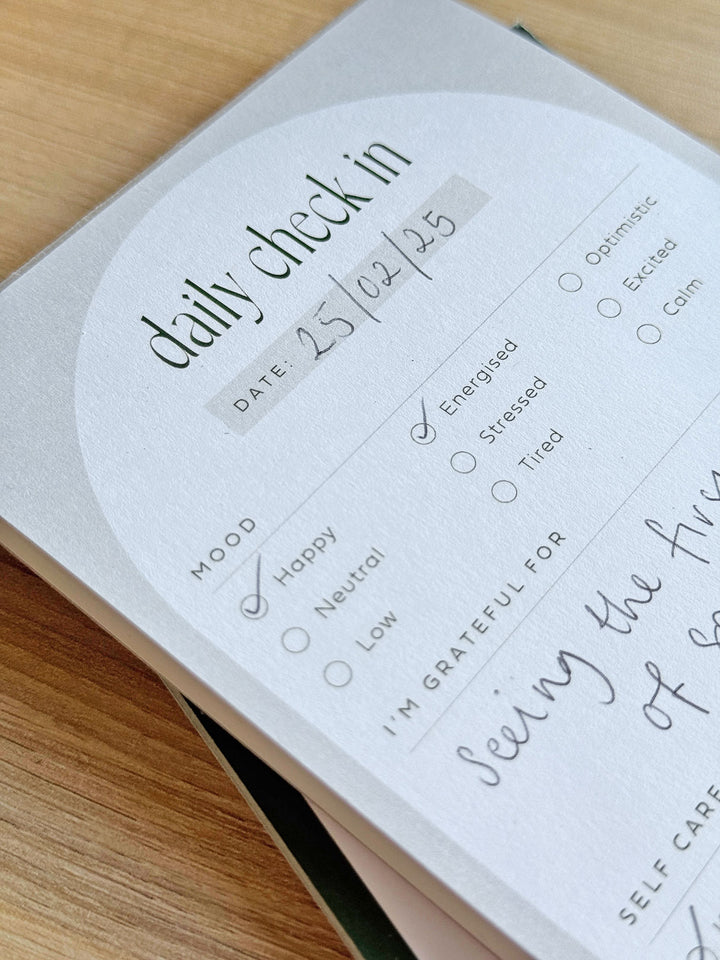 daily check in
DATE: 25/02/25
MOOD
Happy
Neutral
Low
Energised
Stressed
Tired
Optimistic
Excited
Calm
I'M GRATEFUL FOR
Seeing the first
of
SELF CARE